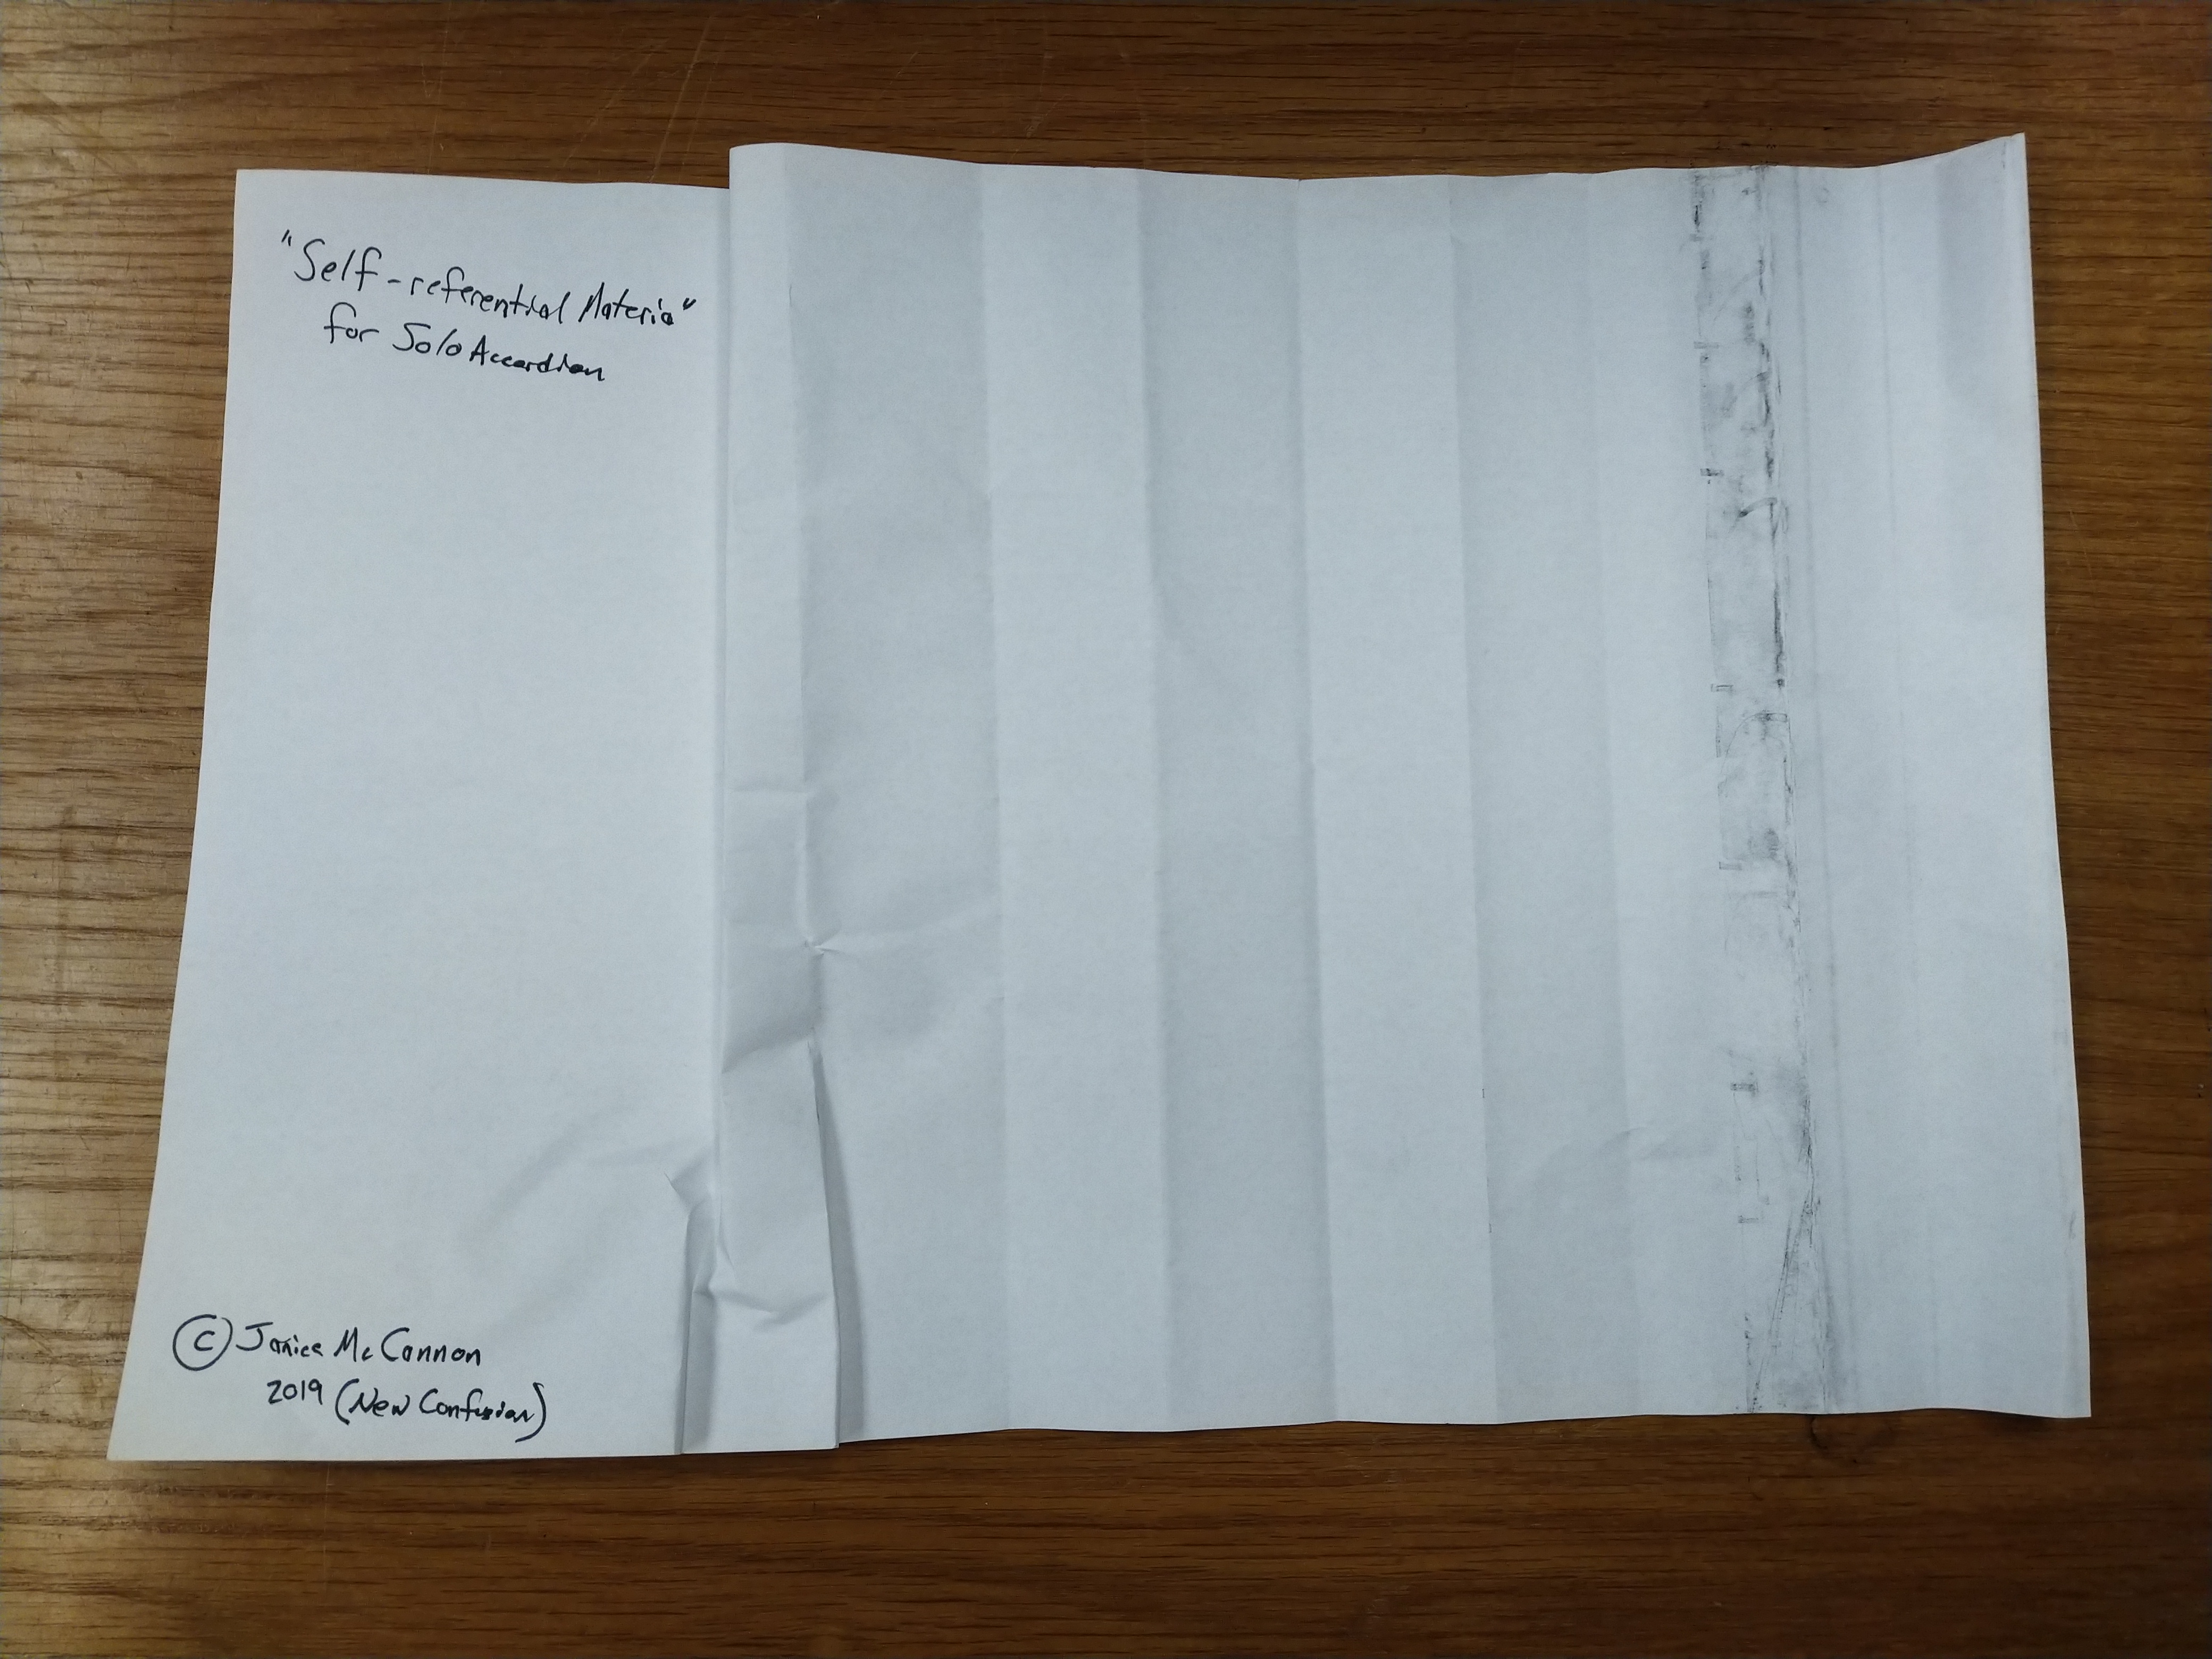 "Self-referential Materia"
for Solo Accordion
© Janice McCannon
2019 (New Confusion)